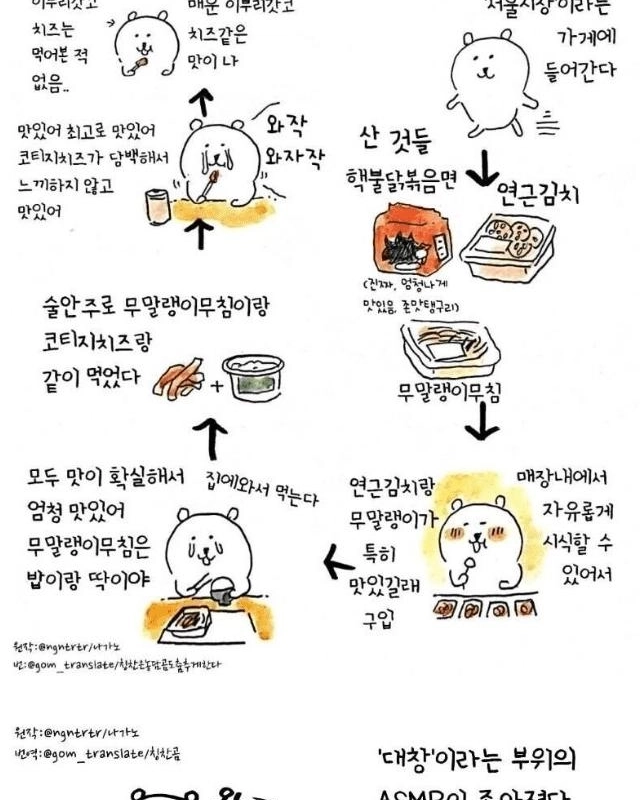 '서울시장'이라는
가게에
들어간다
산 것들
핵불닭볶음면
연근김치
(진짜, 엄청나게
맛있음, 존맛탱구리)
무말랭이무침
매장내에서
자유롭게
시식할 수
있어서
연근김치랑
무말랭이가
특히
맛있길래
구입
집에와서 먹는다
모두 맛이 확실해서
엄청 맛있어
무말랭이무침은
밥이랑 딱이야
술안주로 무말랭이무침이랑
코티지치즈랑
같이 먹었다
+
와작
와자작
맛있어 최고로 맛있어
코티지치즈가 담백해서
느끼하지 않고
맛있어
매운 이부리갓코
치즈같은
맛이 나
이부리갓코
치즈는
먹어본 적
없음..
원작:@ngntrtr/나가노
번:@gom_translate/칭찬은농담곰도춤추게한다
원작:@ngntrtr/나가노
번역:@gom_translate/칭찬곰
'대창'이라는 부위의
ASMR이 좋아졌다